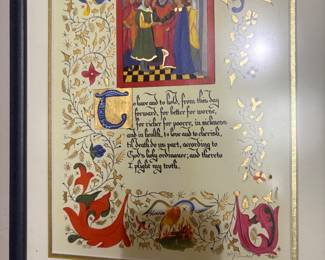 To have and to hold, from this day
forward, for better for worse,
for richer for poorer, in sickness
and in health, to love and to cherish,
till death do us part, according to
God's holy ordinance; and thereto
I plight my troth.